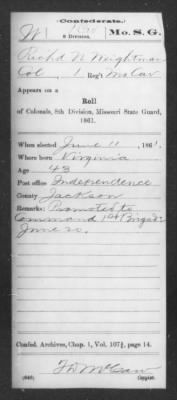 Confederate.
W 8 Division. Mo. S. G.
Rich'd H. Weightman
Col, 1 Reg't Mo Cav
Appears on a
Roll
of Colonels, 8th Division, Missouri State Guard,
1861.
When elected June 11, 1861.
Where born Virginia
Age 43
Post office Independence
County Jackson
Remarks: Promoted to
Command 1st Brigade
June 20.
Confed. Archives, Chap. 1, Vol. 107½, page 14.
(646) Copyist.